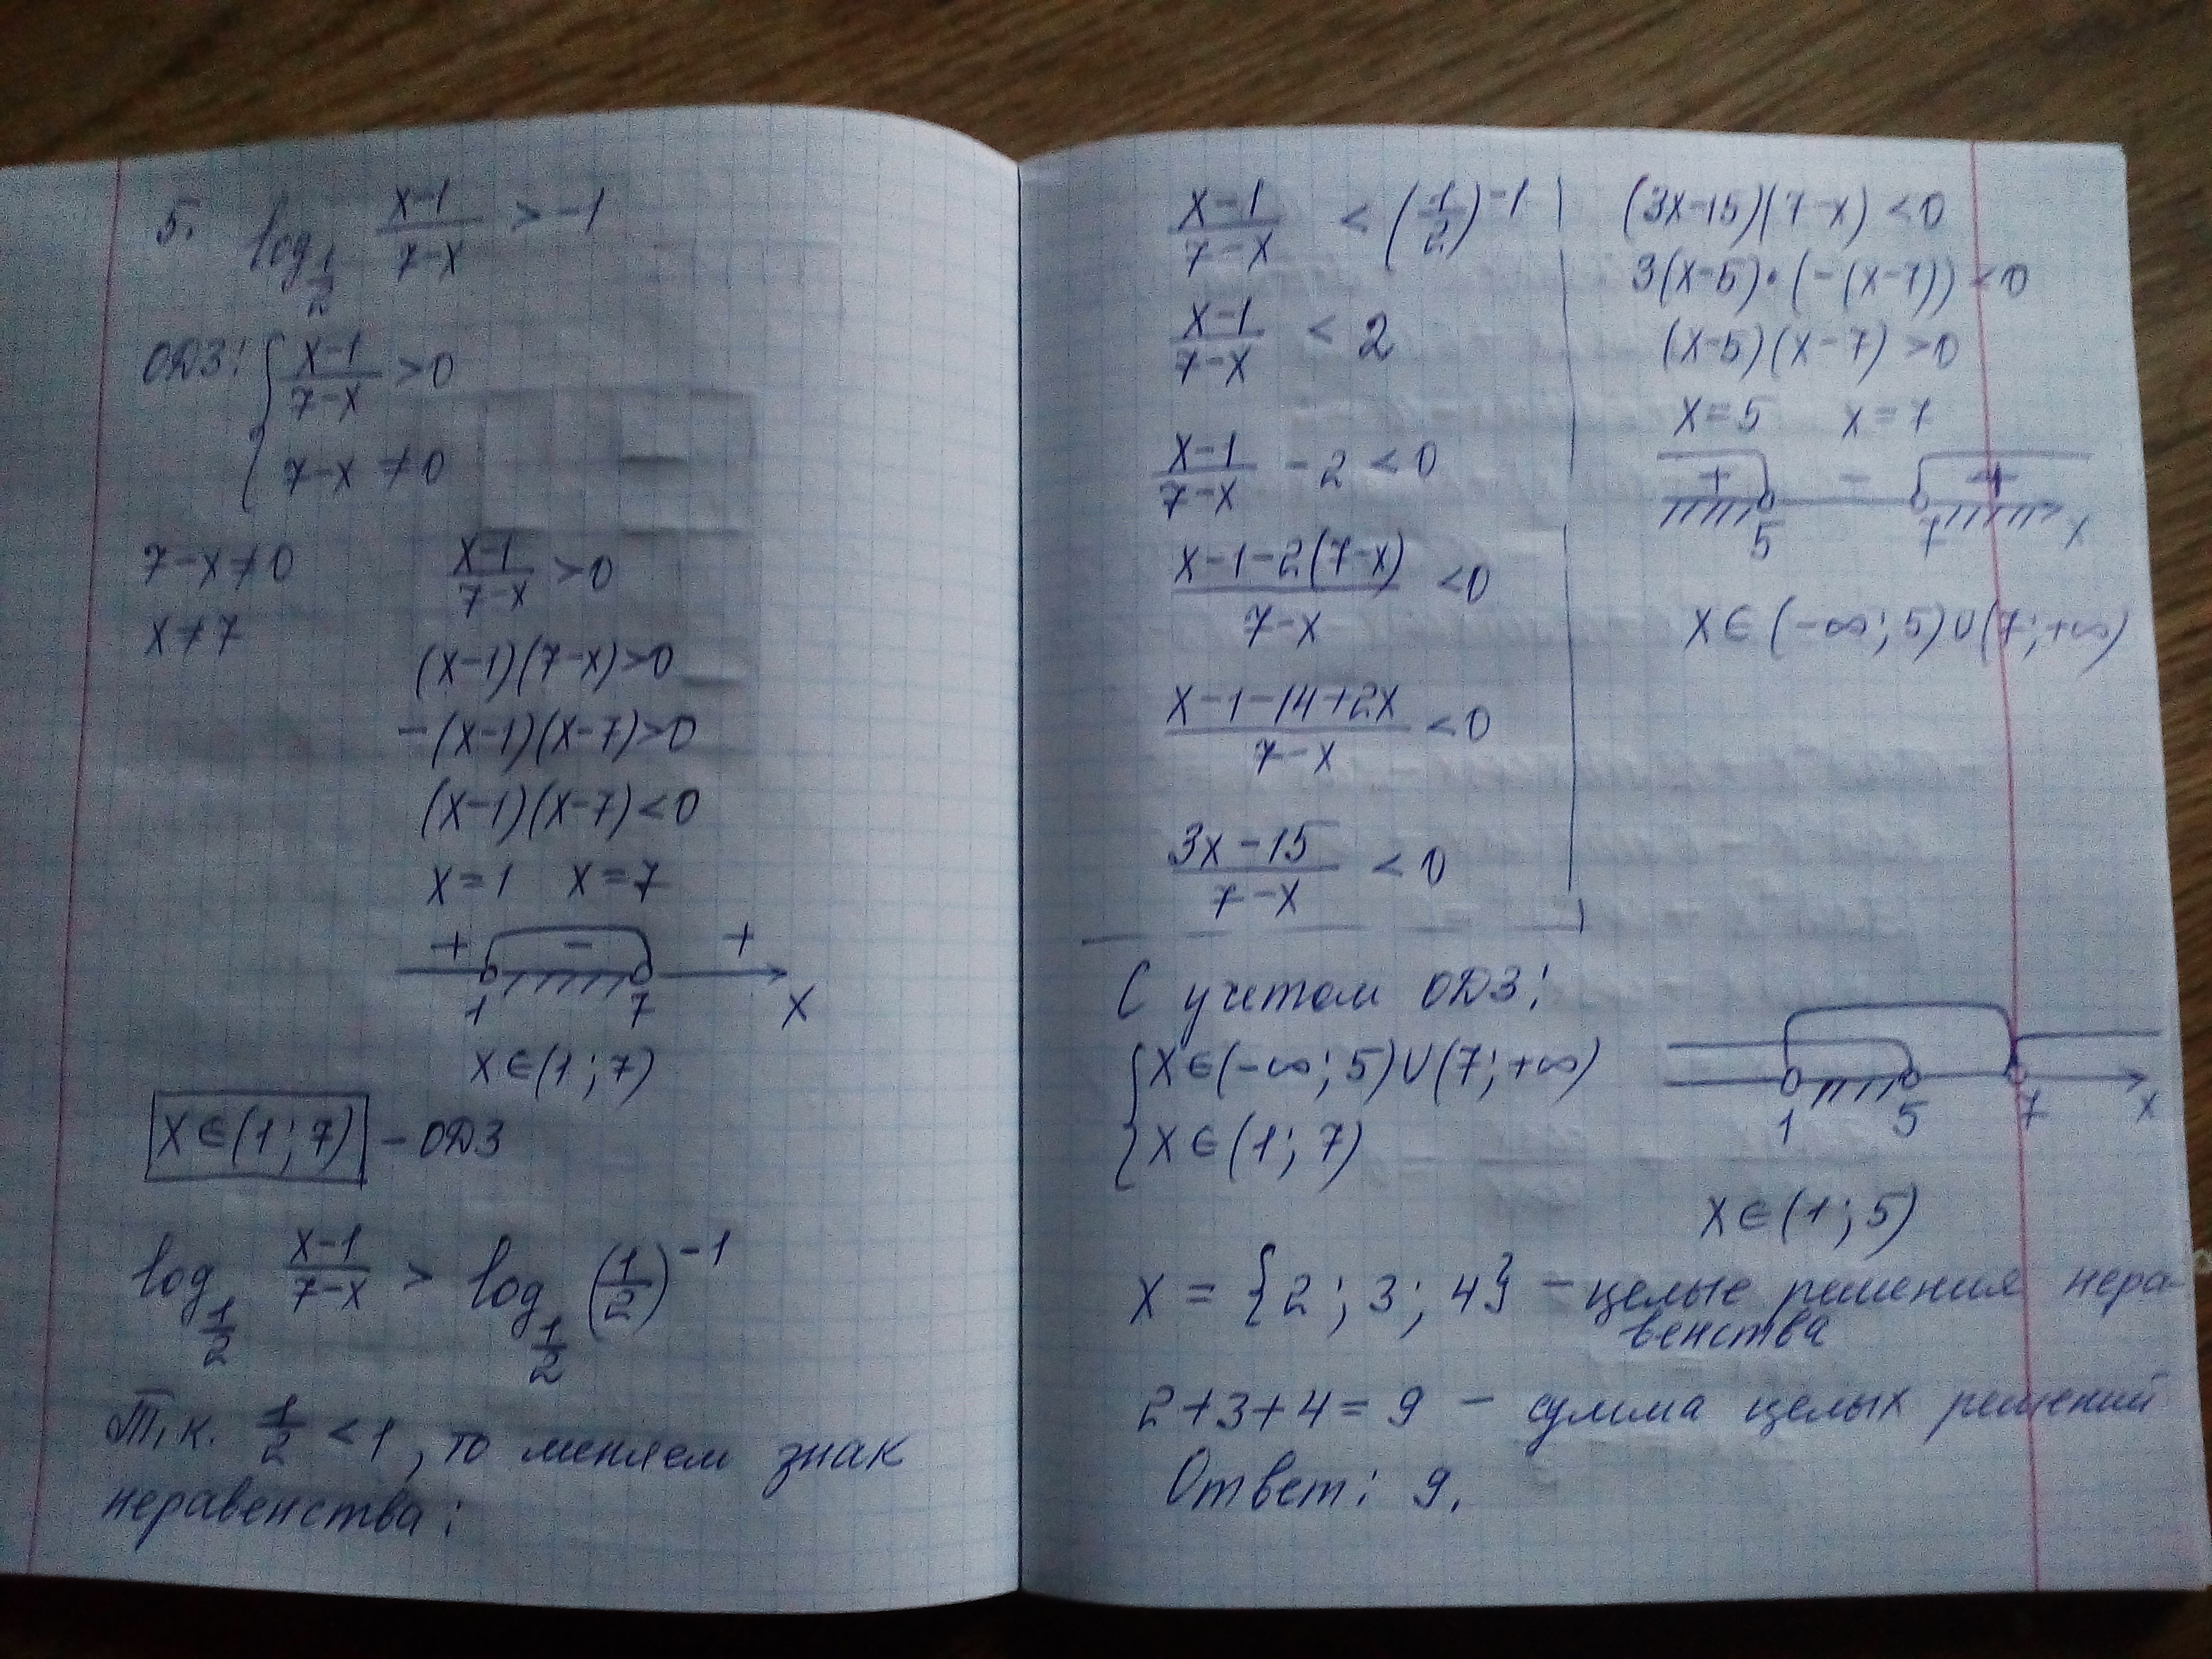 5. log_{1/2} (x-1)/(7-x) > -1
ОДЗ: { (x-1)/(7-x) > 0
7-x ≠ 0
7-x ≠ 0
x ≠ 7
(x-1)/(7-x) > 0
(x-1)(7-x) > 0
-(x-1)(x-7) > 0
(x-1)(x-7) < 0
x = 1 x = 7
+ - +
1 7 x
x ∈ (1; 7)
x ∈ (1; 7) - ОДЗ
log_{1/2} (x-1)/(7-x) > log_{1/2} (1/2)^{-1}
Т.к. 1/2 < 1, то меняем знак
неравенства:
(x-1)/(7-x) < (1/2)^{-1}
(x-1)/(7-x) < 2
(x-1)/(7-x) - 2 < 0
(x-1-2(7-x))/(7-x) < 0
(x-1-14+2x)/(7-x) < 0
(3x-15)/(7-x) < 0
(3x-15)(7-x) < 0
3(x-5)·(-(x-7)) < 0
(x-5)(x-7) > 0
x = 5 x = 7
+ - +
5 7 x
x ∈ (-∞; 5) ∪ (7; +∞)
С учетом ОДЗ:
{ x ∈ (-∞; 5) ∪ (7; +∞)
x ∈ (1; 7)
1 5 7 x
x ∈ (1; 5)
x = {2; 3; 4} - целые решения нера-
венства
2+3+4 = 9 - сумма целых решений
Ответ: 9.